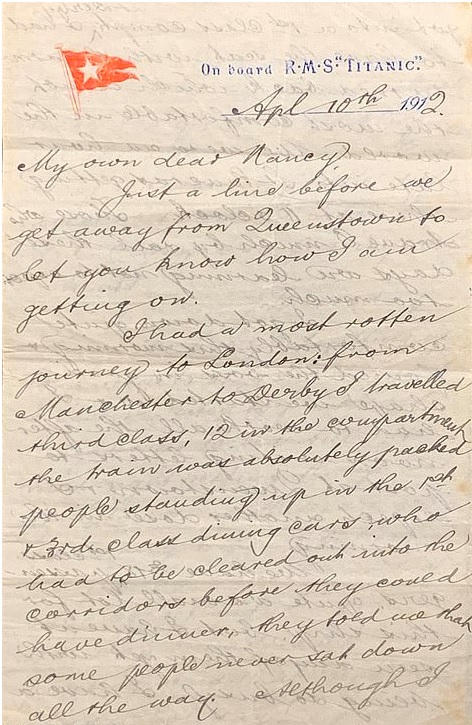 On board R.M.S. "TITANIC".
Apl 10th 1912.
My own dear Nancy
Just a line before we
get away from Queenstown to
let you know how I am
getting on.
I had a most rotten
journey to London: from
Manchester to Derby I travelled
third class, 12 in the compartment
the train was absolutely packed
people standing up in the 1st
& 3rd class dining cars, who
had to be cleared out into the
corridors before they could
have dinner, they told us that
some people never sat down
all the way. Although I